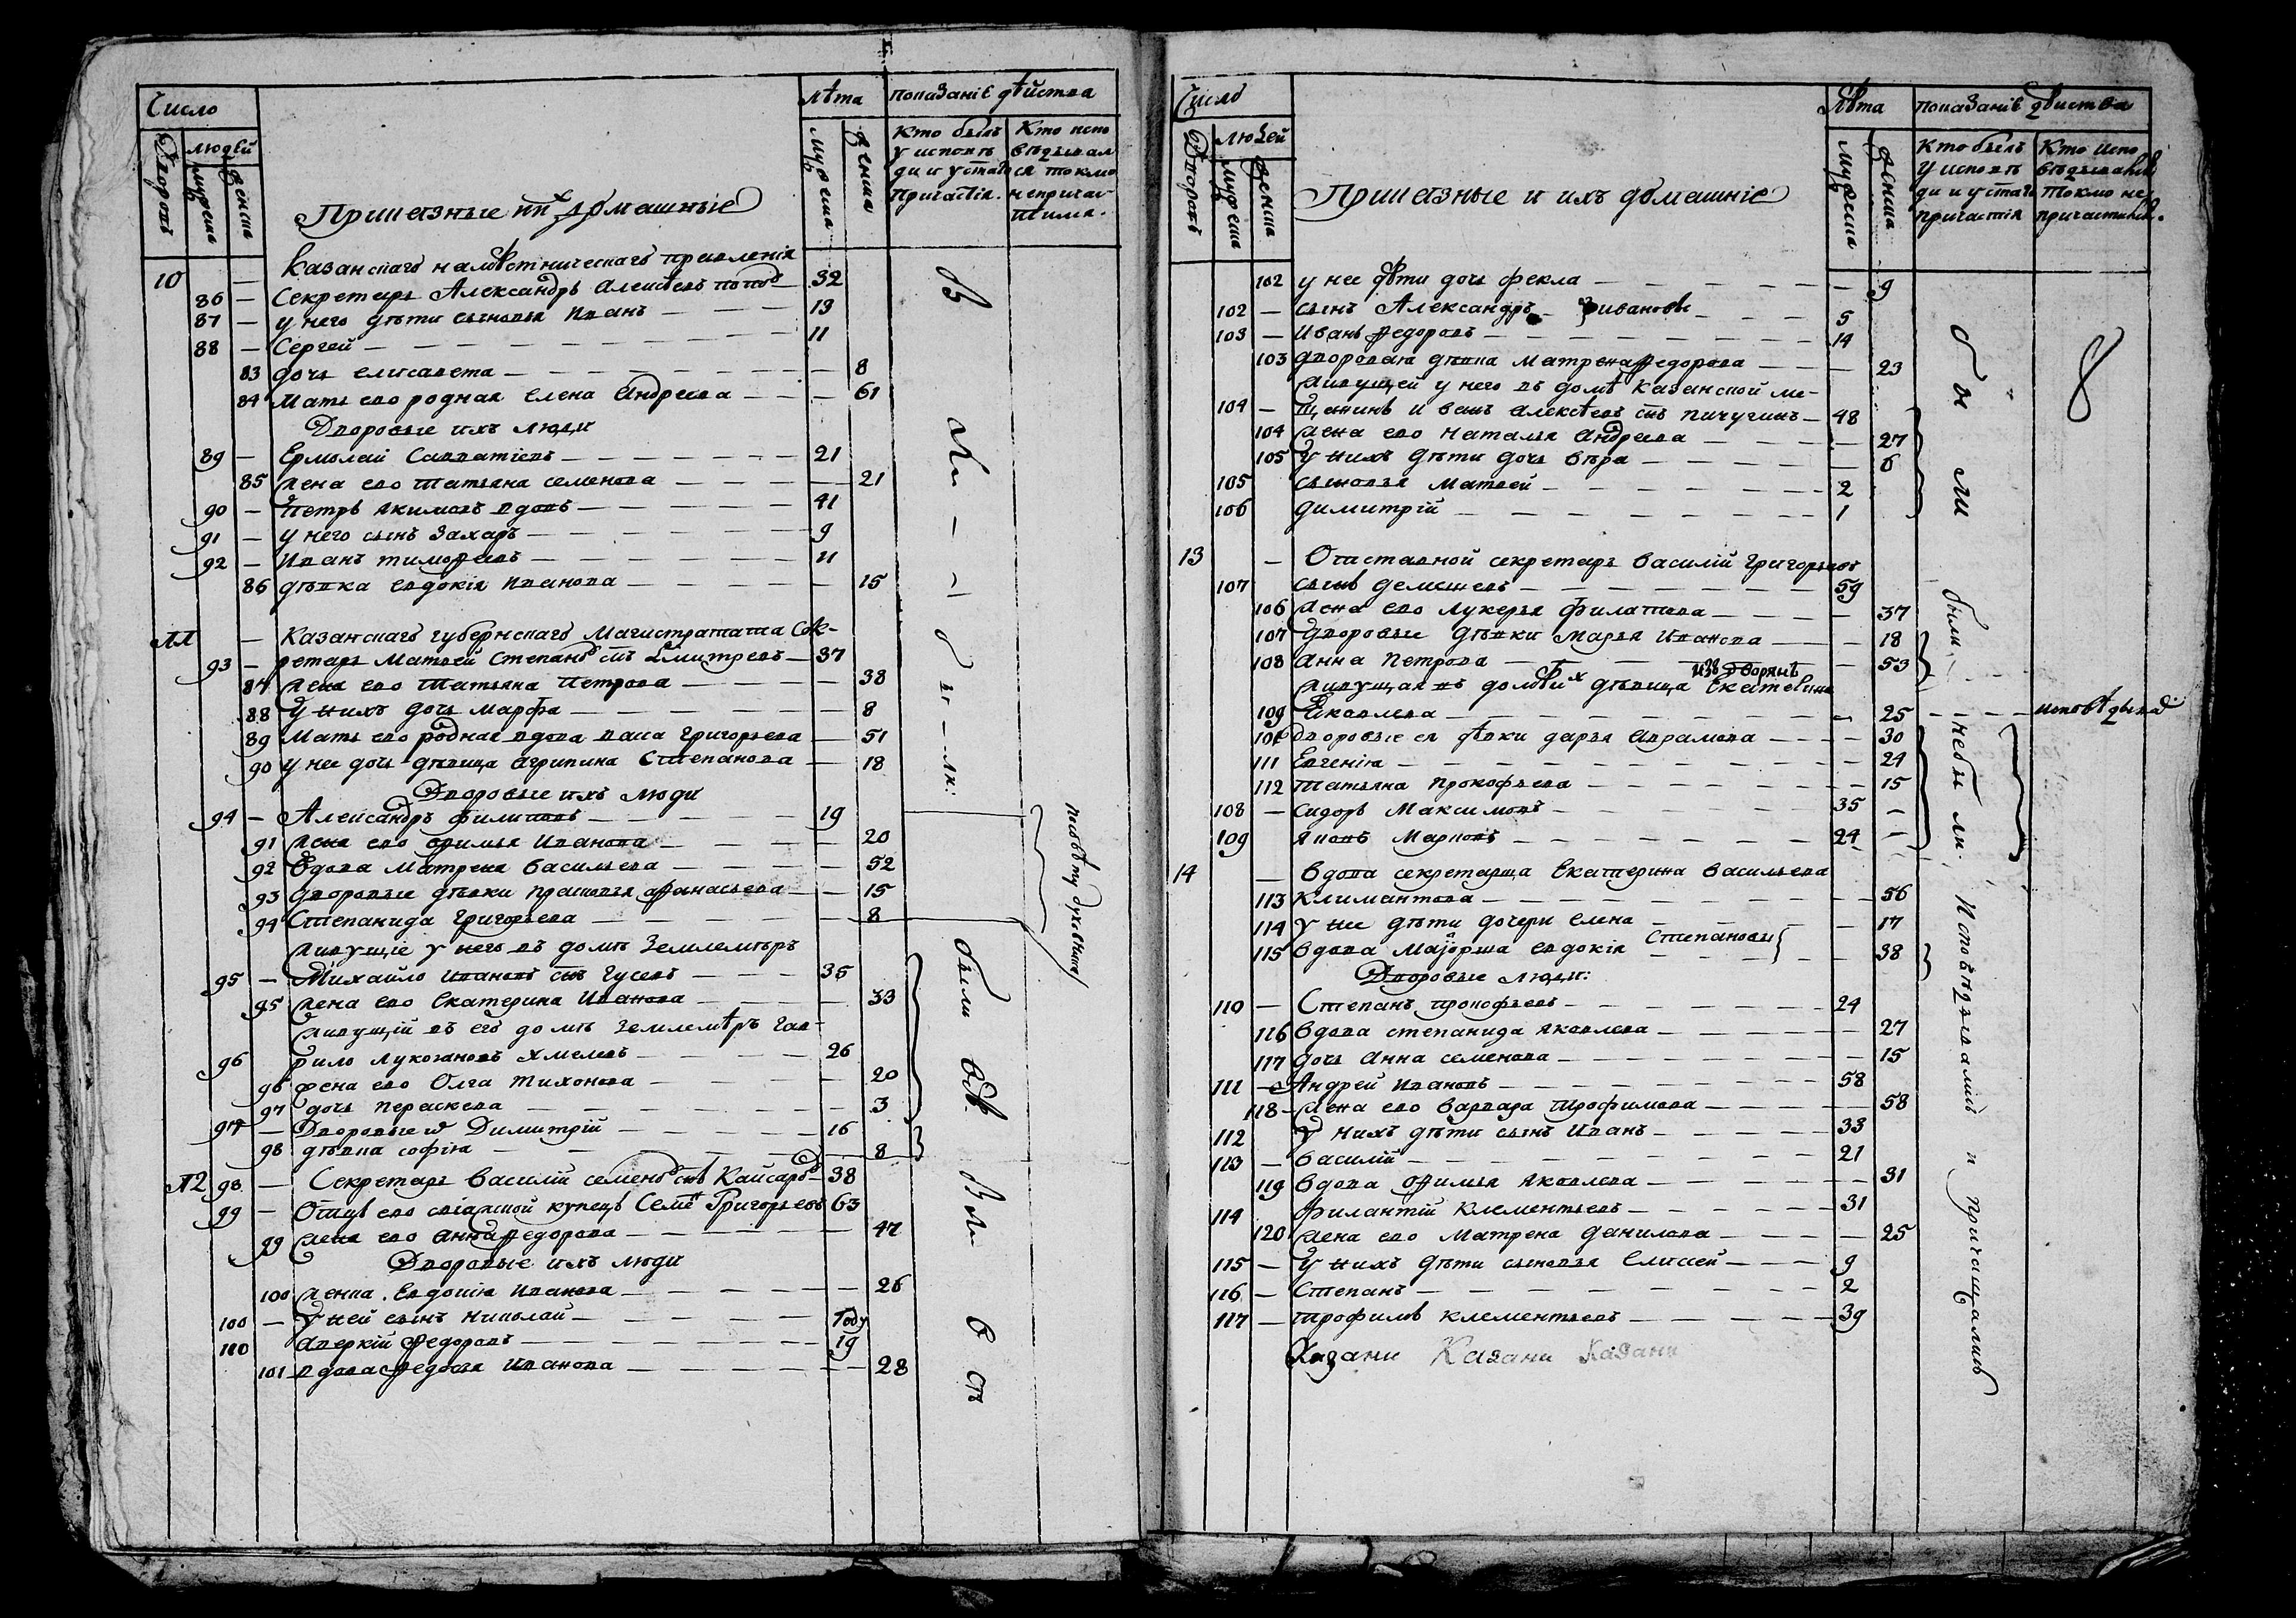 Число
Лѣта
показаніе дѣйства
Дворовъ
людей
мужеска
женска
Приказные и ихъ домашніе
мужеска
женска
Кто былъ
у исповѣ
ди и у стаго
причастія.
Кто испо
вѣдывал
ся токмо
непричас
тился.
10 — Казанскаго намѣстническаго правленія
86 — Секретарь Александръ Алексѣевъ Поповъ — 32
87 — у него дѣти сыновья Иванъ — 13
88 — Сергей — 11
83 дочь елисавета — 8
84 Мать ево родная Елена Андреева — 61
Дворовые ихъ люди
89 — Ермолай Савватіевъ — 21
85 жена ево татьяна семенова — 21
90 — Петръ Якимовъ вдовъ — 41
91 — у него сынъ Захаръ — 9
92 — Иванъ тимофеевъ — 11
86 дѣвка евдокія Иванова — 15
11 — Казанскаго губернскаго Магистратата Сек-
93 — ретарь Матвей Степановъ снъ Дмитревъ — 37
87 жена ево Татьяна Петрова — 38
88 У нихъ дочь марфа — 8
89 Мать ево родная вдова васа Григорьева — 51
90 у нее дочь дѣвица Агрипина Степанова — 18
Дворовые ихъ люди
94 — Александръ филиповъ — 19
91 жена ево афимья Иванова — 20
92 Вдова Матрена Васильева — 52
93 дворовые дѣвки прасковья афанасьева — 15
94 Степанида Григорьева — 8
живущіе у него въ домѣ Землемѣръ
95 — Михайло ивановъ снъ Гусевъ — 35
95 жена ево Екатерина Иванова — 33
живущій въ его домѣ Землемѣръ Гав-
96 рило Хмелевъ — 26
96 жена ево Олга тихонова — 20
97 дочь Пераскева — 3
97 — Дворовые Димитрій — 16
98 дѣвка софія — 8
12 98 — Секретарь Василій семеновъ снъ Кайсаровъ — 38
99 — Отецъ ево купецъ Семенъ Григорьевъ 63
99 жена ево анна федорова — 47
Дворовые ихъ люди
100 женка. Евдокія Иванова — 26
100 — У ней сынъ Николай — Году
110 Аверкій федоровъ — 19
101 вдова федосья Иванова — 28
по совѣту духовника
были
Число
Лѣта
показаніе дѣйства
Дворовъ
людей
мужеска
женска
Приказные и ихъ домашніе
мужеска
женска
Кто былъ
У исповѣ
ди и у стаго
причастія
Кто испо
вѣдывался
токмо не
причастился.
102 у нее дѣти дочь фекла — 9
102 — сынъ Александръ } ивановы — 5
103 — Иванъ федоровъ — 14
103 дворовая дѣвка Матрена федорова — 23
живущей у него въ домѣ казанской ме-
104 — щанинъ иванъ алексѣевъ снъ пичугинъ — 48
104 жена ево наталья андреева — 27
105 У нихъ дѣти дочь вѣра — 6
105 сыновья Матвей — 2
106 димитрій — 1
были
8
13 — Отставной секретарь василій григорьевъ
107 сынъ демешевъ — 59
106 жена ево лукерья филатова — 37
107 дворовые дѣвки марья иванова — 18
108 анна Петрова — 53
изъ дворянъ
живущая въ домѣ их дѣвица Екатерина
109 Яковлева — 25 — исповѣдывалась
дворовые ея дѣвки дарья аврамова — 30
111 Евгенія — 24
112 татьяна прокофьева — 15
108 — сидоръ Максимовъ — 35
109 яковъ Марковъ — 24
были
небыли.
14 — Вдова секретарша Екатерина васильева
113 Климантова — 56
114 у нее дѣти дочери елена — 17
115 вдова Маіорша евдокія Степановы { — 38
Дворовые люди:
110 — Степанъ прокофьевъ — 24
116 Вдова степанида яковлева — 27
117 дочь анна семенова — 15
111 — Андрей Ивановъ — 58
118 — жена ево варвара трофимова — 58
112 У нихъ дѣти сынъ иванъ — 33
113 — василій — 21
119 вдова афимья яковлева — 31
114 филантій клементьевъ — 31
120 жена ево матрена данилова — 25
115 — У нихъ дѣти сыновья Елисей — 9
116 — Степанъ — 2
117 — трофимъ клементьевъ — 39
исповѣдывались и причащались
Казани Казани Казани